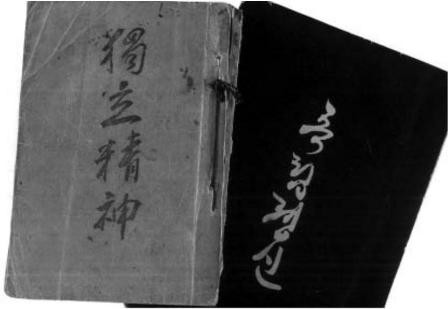 獨立精神
독립졍신